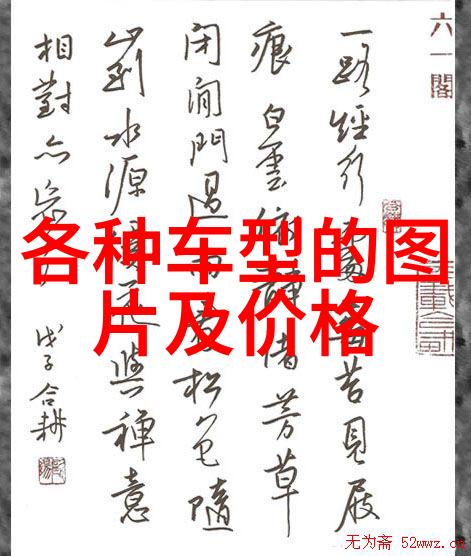 六一閣
一路經行處苔見屐
痕白雲依靜渚芳草
閉閑門過雨看松色隨
山到水源溪花與禪意
相對亦忘言
戊子合耕
各种车型的图
片及价格
无为斋 52wwz.c